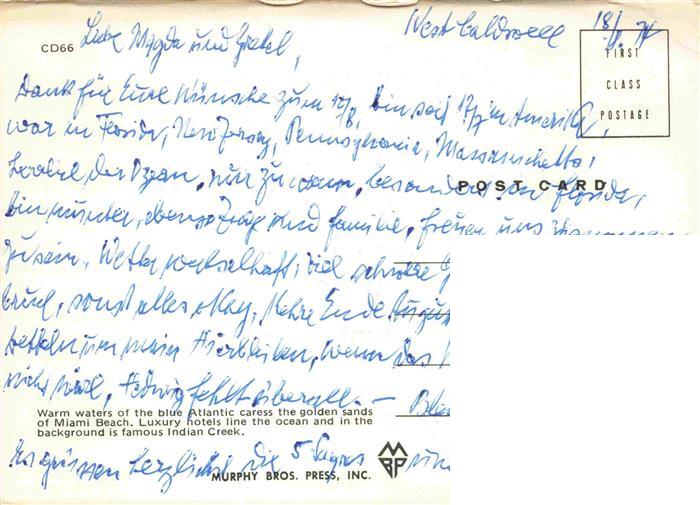 West Caldwell 18/8 74
CD66 Liebe Magda und Gretel,
FIRST
CLASS
POSTAGE
Dank für Eure Wünsche zum 17/8, bin seit 17/7 in Amerika,
war in Florida, New Jersey, Pennsylvania, Massachusetts,
der Ozean, nur zu warm, besonders in Florida,
POST CARD
bin munter, ebenso und Familie, freuen uns
zu sein, Wetter wechselhaft, viel schwere
sonst alles okay, Kehre Ende August
betteln um mein Hierbleiben, wenn das
nicht wird, Hedwig fehlt überall. –
Warm waters of the blue Atlantic caress the golden sands
of Miami Beach. Luxury hotels line the ocean and in the
background is famous Indian Creek.
Es grüssen herzlichst die 5
MURPHY BROS. PRESS, INC.
MBP